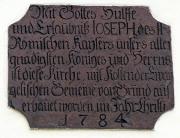 Mit Gottes Hülffe
und Erlaubniß IOSEPH des II
Römischen Kaysers unsers aller
gnädigsten Königes und Herrens
ist diese Kirche, mit Kosten der Evan
gelischen Gemeine vom Grund auf
erbauet worden im Jahr Christi
1784